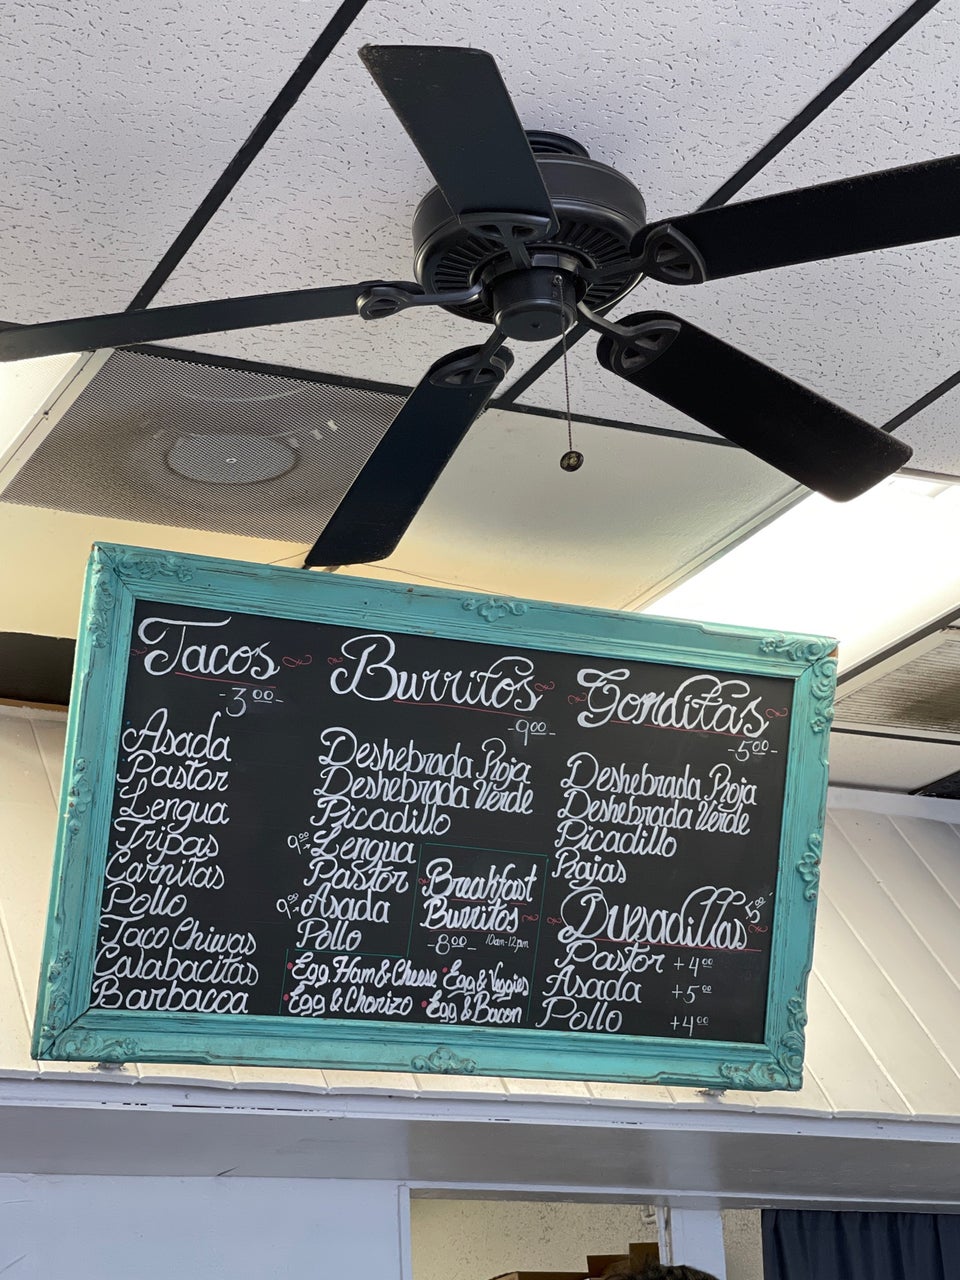 Tacos
-3 00-
Asada
Pastor
Lengua
Tripas
Carnitas
Pollo
Taco Chiwas
Calabacitas
Barbacoa
Burritos
-9 00-
Deshebrada Roja
Deshebrada Verde
Picadillo
Lengua
Pastor
Asada
Pollo
Breakfast
Burritos
-8 00- 10am-12pm
Egg, Ham & Cheese Egg & Veggies
Egg & Chorizo Egg & Bacon
Gorditas
-5 00-
Deshebrada Roja
Deshebrada Verde
Picadillo
Rajas
Quesadillas 5 00
Pastor +4 00
Asada +5 00
Pollo +4 00